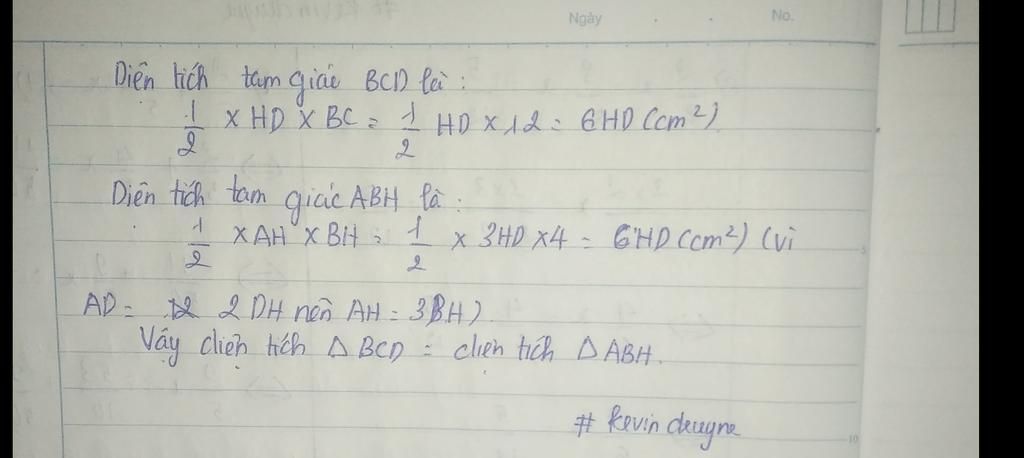 Ngày . . No.
Diện tích tam giác BCD là :
1/2 x HD x BC = 1/2 HD x 12 = 6HD (cm²)
Diện tích tam giác ABH là :
1/2 x AH x BH = 1/2 x 3HD x 4 = 6HD (cm²) (vì
AD = 2 DH nên AH = 3BH)
Vậy diện tích Δ BCD = diện tích Δ ABH.
# kevin
10